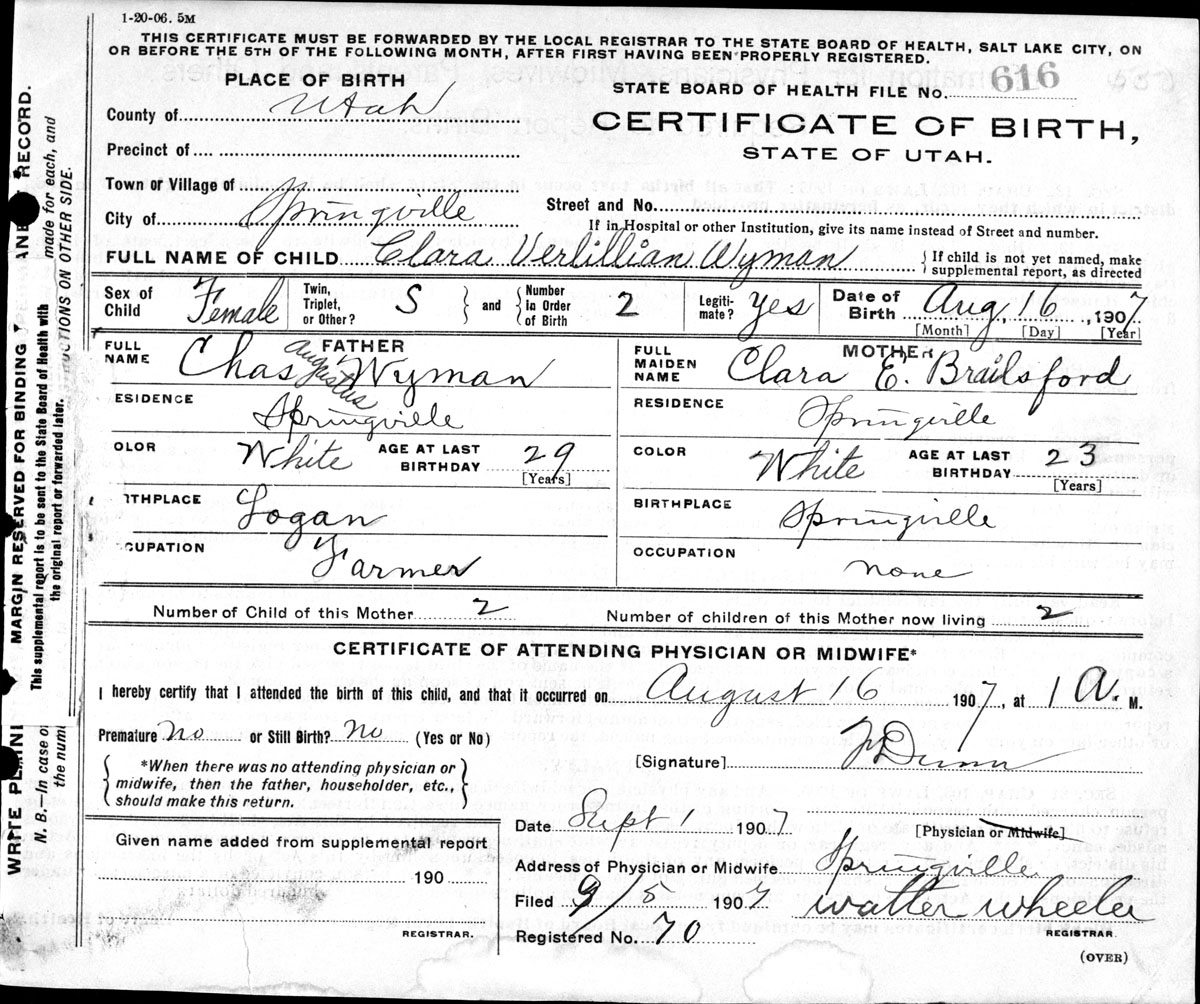 1-20-06. 5M
THIS CERTIFICATE MUST BE FORWARDED BY THE LOCAL REGISTRAR TO THE STATE BOARD OF HEALTH, SALT LAKE CITY, ON
OR BEFORE THE 5TH OF THE FOLLOWING MONTH, AFTER FIRST HAVING BEEN PROPERLY REGISTERED.
PLACE OF BIRTH
STATE BOARD OF HEALTH FILE No. 616
County of Utah
CERTIFICATE OF BIRTH,
STATE OF UTAH.
Precinct of
Town or Village of
Street and No.
City of Springville
If in Hospital or other Institution, give its name instead of Street and number.
FULL NAME OF CHILD Clara Verlillian Wyman { If child is not yet named, make supplemental report, as directed
Sex of Child Female Twin, Triplet, or Other? S } and { Number in Order of Birth 2 Legiti-mate? Yes Date of Birth Aug, 16, 1907
[Month] [Day] [Year]
FATHER
FULL NAME Chas Augustus Wyman
MOTHER
FULL MAIDEN NAME Clara E. Brailsford
ESIDENCE Springville
RESIDENCE Springville
OLOR White AGE AT LAST BIRTHDAY 29 [Years]
COLOR White AGE AT LAST BIRTHDAY 23 [Years]
THPLACE Logan
BIRTHPLACE Springville
CUPATION Farmer
OCCUPATION none
Number of Child of this Mother 2 Number of children of this Mother now living 2
CERTIFICATE OF ATTENDING PHYSICIAN OR MIDWIFE*
I hereby certify that I attended the birth of this child, and that it occurred on August 16 1907, at 1 A. M.
Premature No or Still Birth? No (Yes or No)
[Signature] Dunn
{ *When there was no attending physician or
midwife, then the father, householder, etc.,
should make this return. }
Date Sept 1 1907 [Physician or Midwife]
Given name added from supplemental report
190
REGISTRAR.
Address of Physician or Midwife Springville
Filed 9/5 1907 Walter Wheeler
Registered No. 70 REGISTRAR.
(OVER)
MARGIN RESERVED FOR BINDING
RECORD.
This supplemental report is to be sent to the State Board of Health with
the original report or forwarded later.
made for each, and
CTIONS ON OTHER SIDE.
N. B. In case of
the num